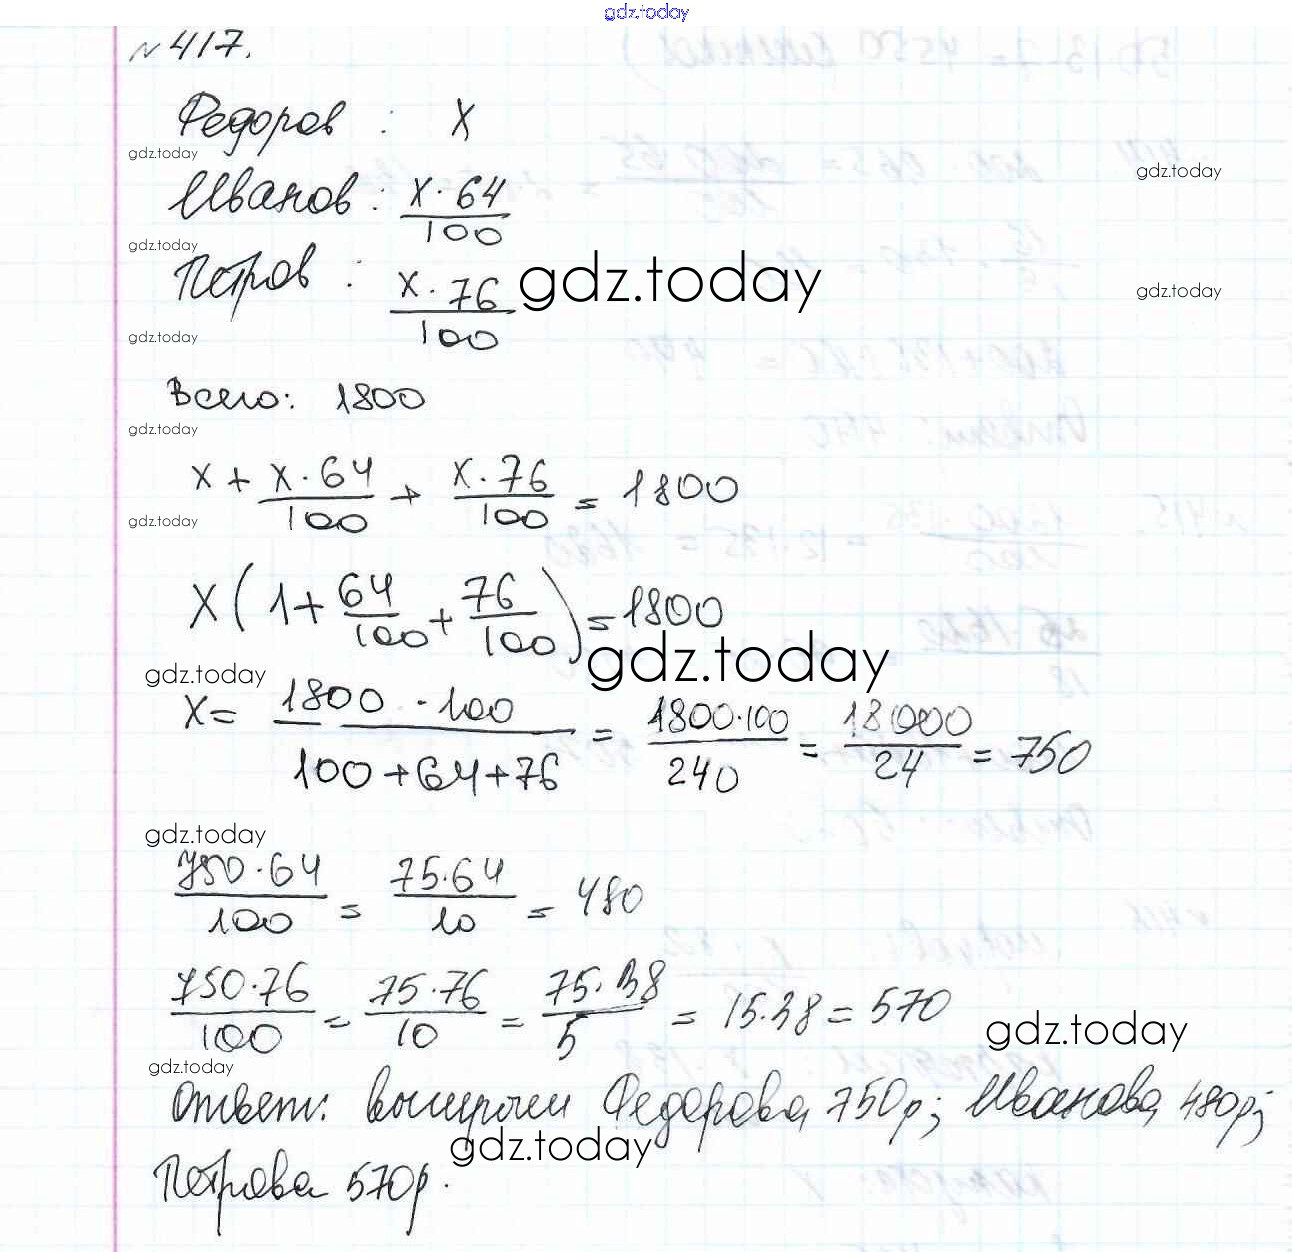 gdz.today
№417.
Федоров : x
gdz.today
gdz.today
Иванов: x·64/100
gdz.today
Петров : x·76/100
gdz.today
gdz.today
gdz.today
Всего: 1800
gdz.today
x + x·64/100 + x·76/100 = 1800
gdz.today
x(1+64/100+76/100)=1800
gdz.today
gdz.today
x= 1800·100/100+64+76 = 1800·100/240 = 18000/24 = 750
gdz.today
750·64/100 = 75·64/10 = 480
750·76/100 = 75·76/10 = 75·38/5 = 15·38 = 570
gdz.today
gdz.today
Ответ: выигрыш Федорова 750р; Иванова 480р;
gdz.today
Петрова 570р.